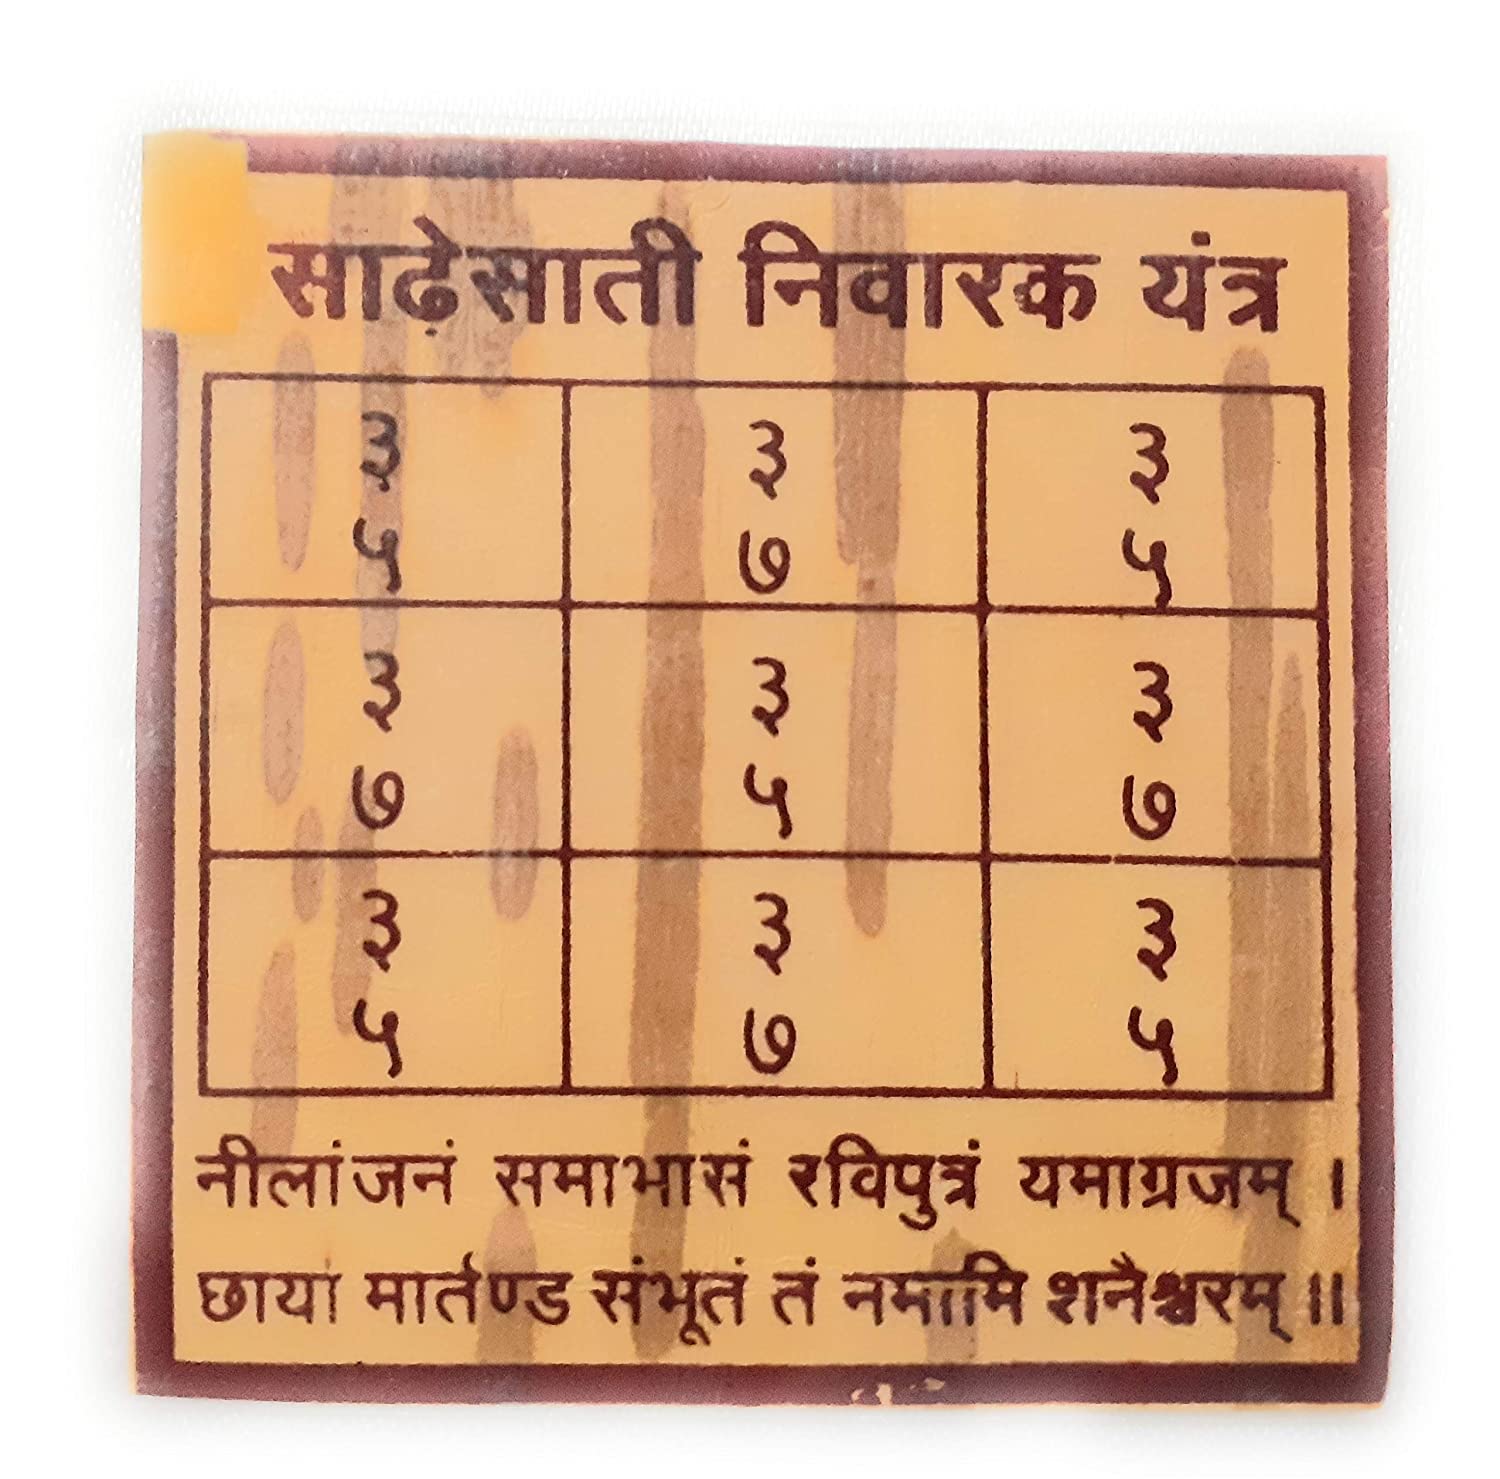 साढ़ेसाती निवारक यंत्र
३ ३ ३
५ ७ ५
३ ३ ३
७ ५ ७
३ ३ ३
५ ७ ५
नीलांजनं समाभासं रविपुत्रं यमाग्रजम् ।
छायां मार्तण्ड संभूतं तं नमामि शनैश्चरम् ॥